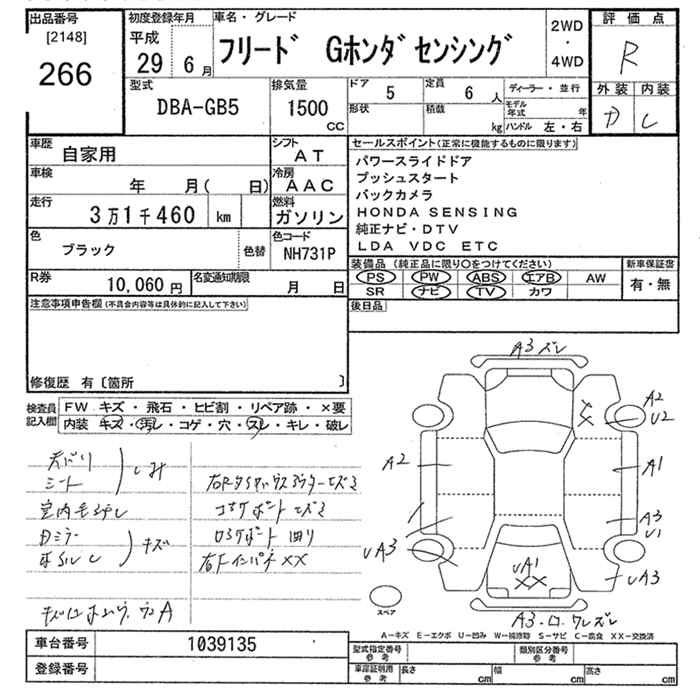 出品番号
[2148]
266
初度登録年月
平成
29 6月
車名・グレード
フリード Gホンダセンシング
2WD
・
4WD
評価点
R
外装 内装
D C
型式
DBA-GB5
排気量
1500
CC
ドア 5
定員 6 人
形状
積載
kg
ディーラー・並行
モデル年式 年
ハンドル 左・右
車歴 自家用
シフト AT
車検 年 月( 日)
冷房 AAC
走行 3万1千460 km
燃料 ガソリン
色 ブラック
色替
色コード NH731P
R券 10,060円
名変通知期限 月 日
セールスポイント(正常に機能するものに限ります)
パワースライドドア
プッシュスタート
バックカメラ
HONDA SENSING
純正ナビ・DTV
LDA VDC ETC
装備品(純正品に限り○をつけてください)
PS PW ABS エアB AW
SR ナビ TV カワ
新車保証書
有・無
後日品
注意事項申告欄(不具合内容等は具体的に記入して下さい)
修復歴 有〔箇所 〕
検査員記入欄
FW キズ・飛石・ヒビ割・リペア跡・×要
内装 キズ・汚レ・コゲ・穴・スレ・キレ・破レ
シート
シミ
室内毛汚レ
キズ
A3ズレ
A2
U2
A2
A1
A3
U1
UA3
UA1
XX
UA3
A3・ロ・ワレズレ
スペア
A-キズ E-エクボ U-凹み W-補修跡 S-サビ C-腐食 XX-交換済
車台番号 1039135
登録番号
型式指定番号 参考
類別区分番号 参考
車庫証明用 参考
長さ cm
幅 cm
高さ cm